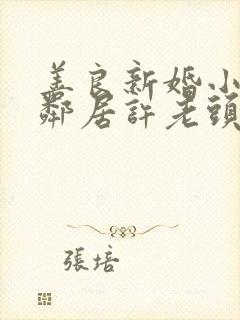 善良新婚小
鄰居許老頭
張培